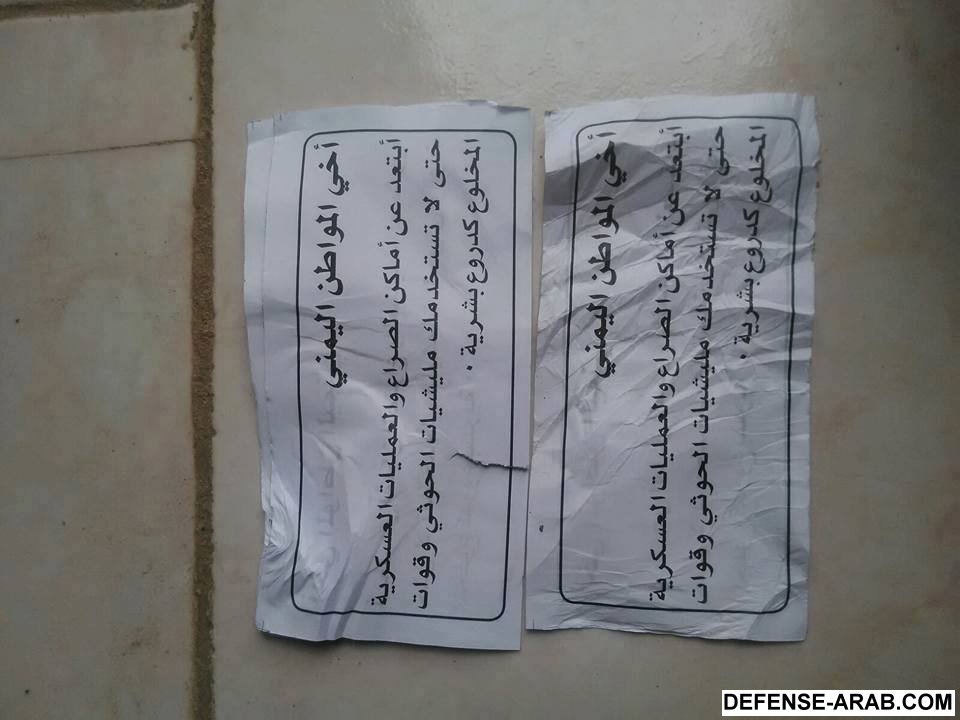 أخي المواطن اليمني
أبتعد عن أماكن الصراع والعمليات العسكرية
حتى لا تستخدمك مليشيات الحوثي وقوات
المخلوع كدروع بشرية .
أخي المواطن اليمني
أبتعد عن أماكن الصراع والعمليات العسكرية
حتى لا تستخدمك مليشيات الحوثي وقوات
المخلوع كدروع بشرية .
DEFENSE-ARAB.COM